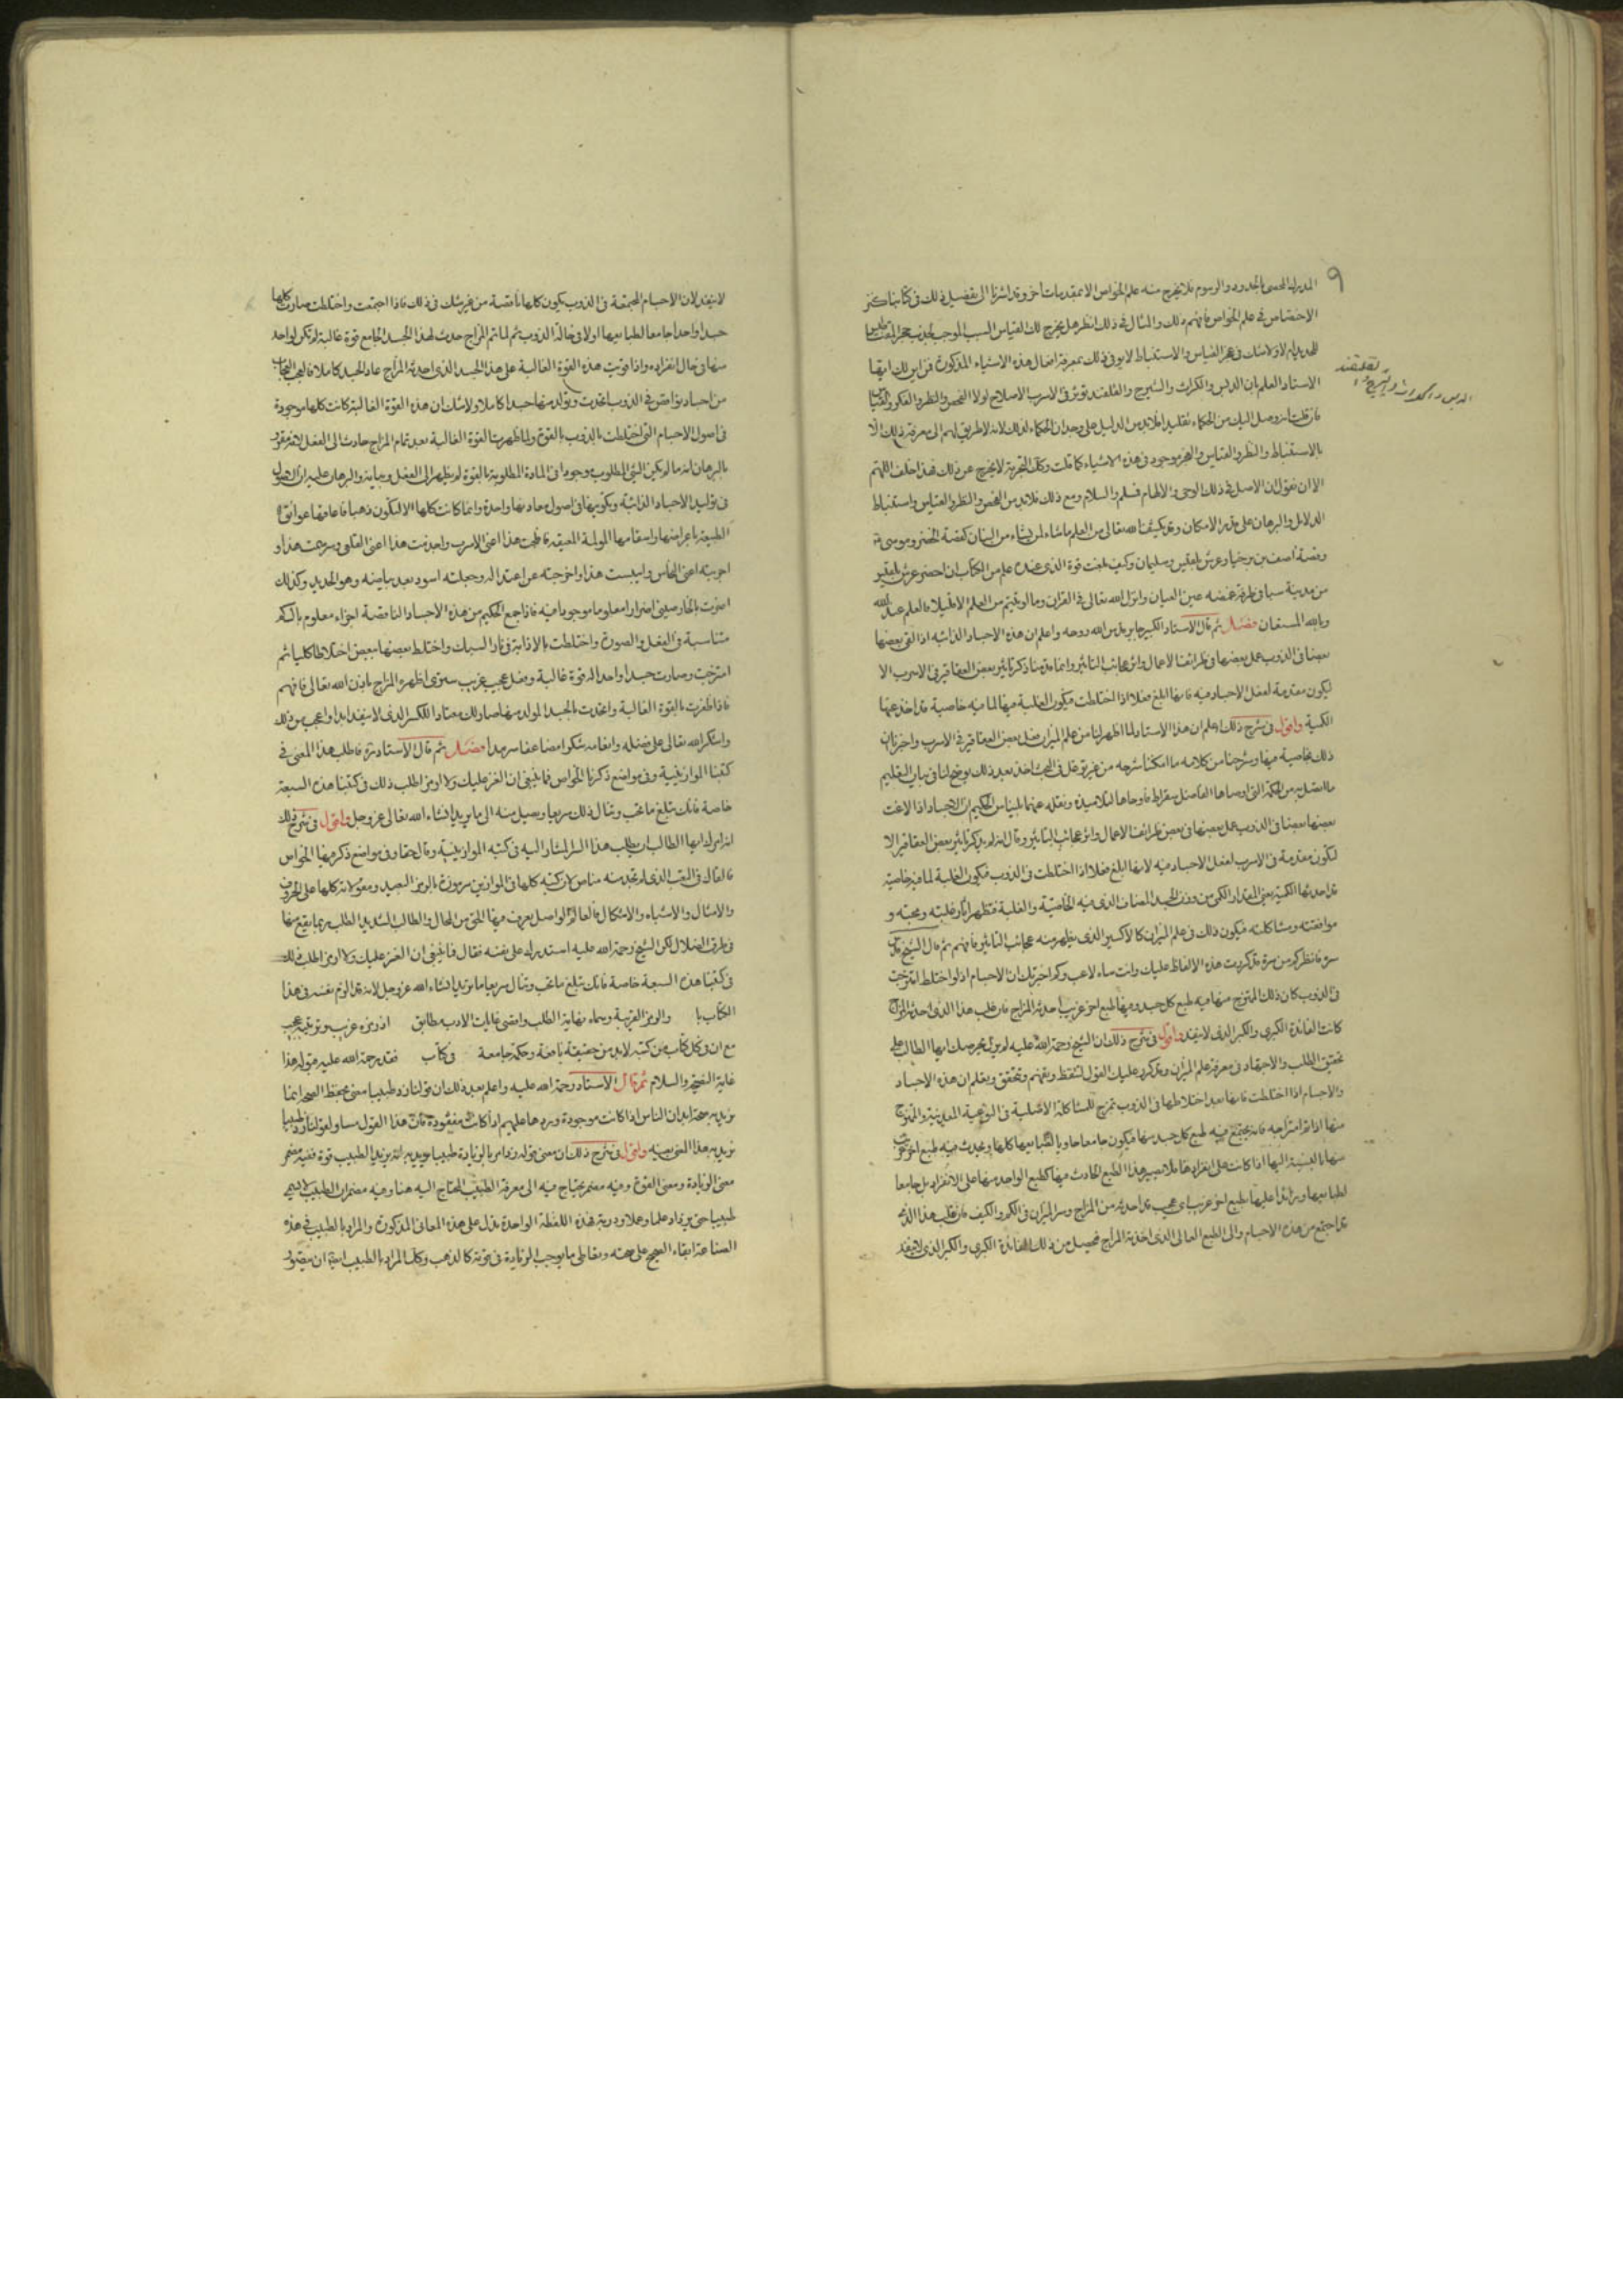 ٩
المدرك الحسى بالحدود والرسوم فلا يخرج منه علم الخواص الا بمقدمات اخر وقد اشرنا الى تفصيل ذلك فى كتابنا كنز
الاختصاص فى علم الخواص فافهم ذلك والمثال فى ذلك انظر هل يخرج لك القياس السبب الموجب لجذب حجر المغناطيس
للحديد ام لا ولا شك فى عجز القياس والاستنباط لا يوفى ذلك بمعرفة افعال هذه الاشياء المذكورة فمن اين لك ايها
الاستاد العلم بان الدبس والكراث والشيرج والقلقند تؤثر فى الاسرب الاصلاح لولا الفحص والنظر والفكر والقياس
فان قلت انه وصل اليك من الحكماء تقليدا فلابد من الدليل على وجدان الحكماء لذلك لانه لا طريق لهم الى معرفة ذلك الا
بالاستنباط والنظر والقياس والعجز موجود فى هذه الاشياء كما قلت وكذا التجربة لا يخرج عن ذلك فهذا خلف اللهم
الا ان نقول ان الاصل فى ذلك الوحى والالهام فسلم والسلام ومع ذلك فلابد من الفحص والنظر والقياس واستنباط
الدلائل والبرهان على قدر الامكان وقد يكشف الله تعالى من العلم ما شاء لمن يشاء من البيان كقصة الخضر وموسى
وقصة اصف بن برخيا وعرش بلقيس وسليمان وكيف بلغت قوة الذى عنده علم من الكتاب ان احضر عرش بلقيس
من مدينة سبا فى طرفة غمضة عين العيان وانزل الله تعالى فى القران وما اوتيتم من العلم الا قليلا والعلم عند الله
وبالله المستعان فصل ثم قال الاستاد الكبير جابر قدس الله روحه واعلم ان هذه الاجساد الذائبة اذا القى بعضها
بعضا فى الذوب عمل بعضها فى طرائف الاعمال واثر عجائب التأثير وانما قدمنا ذكر تأثير بعض العقاقير فى الاسرب الا
ليكون مقدمة لفعل الاجساد فيه فانها ابلغ فعلا اذا اختلطت فيكون الغلبة فيها لما فيه خاصية قد اخذ عنها
الكمية واقول فى شرح ذلك اعلم ان هذا الاستاد لما اظهر لنا من علم الميزان فعل بعض العقاقير فى الاسرب واخبر بان
ذلك بخاصية فيها وشرحنا من كلامه ما امكننا شرحه من غير توغل فى البحث اخذ بعد ذلك يوضح لنا فى بيان التعليم
ما اتصل به من الحكمة التى اوصاها الفاضل سقراط واوحاها لتلاميذه ونقله عنهم بليناس الحكيم ان الاجساد اذا لاقت
بعضها بعضا فى الذوب عمل بعضها فى بعض طرائف الاعمال واثر عجائب التأثير وقال انه لم يذكر تأثير بعض العقاقير الا
لتكون مقدمة فى الاسرب لفعل الاجساد فيه لانها ابلغ فعلا اذا اختلطت فى الذوب فيكون الغلبة لما فيه خاصية
قد احدثها الكمية يعنى المقدار الكمى من وزن الجسد المضاف الذى فيه الخاصية والغلبة فتظهر اثار غلبته ومحبته و
موافقته ومشاكلته فيكون ذلك فى علم الميزان كالاكسير الذى يظهر منه عجائب التأثير فافهم ثم قال الشيخ قدس
سره فانظر كم من مرة قد كررت هذه الالفاظ عليك وانت ساه لاعب وكم اخبرتك ان الاجسام اذا اختلط امتزجت
فى الذوب كان ذلك الممتزج منها فيه طبع كل جسد وفيها طبع اخر غريب احدثه المزاج فان طلب هذا الذى احدثه المزاج
كانت الفائدة الكبرى والكنز الذى لا ينفد واقول فى شرح ذلك ان الشيخ رحمة الله عليه لم يزل يحرصك ايها الطالب على
تحقيق الطلب والاجتهاد فى معرفة علم الميزان وتكرر عليك القول لتيقظ وتفهم وتحقق وتعلم ان هذه الاجساد
والاجسام اذا اختلطت فانها بعد اختلاطها فى الذوب تمزج للمشاكلة الاصلية فى النوعية المعدنية والممتزج
منها اذا تم امتزاجه فانه يجتمع فيه طبع كل جسد منها فيكون جامعا حاويا لطبايعها كلها ويحدث فيه طبع اخر غريب
منها بالنسبة اليها اذا كانت على انفرادها فلا يصير هذا الطبع الحادث فيها كطبع الواحد منها على الانفراد بل جامعا
لطبايعها وزائدا عليها بطبع اخر غريب اى عجيب قد احدثه من المزاج وسر الميزان فى الكم والكيف فان طلب هذا الذى
قد اجتمع من هذه الاجسام والى الطبع العالى الذى احدثه المزاج تحصيل من ذلك الفائدة الكبرى والكنز الذى لا ينفد
قلقند
الدبس والكراث والشيرج
لا ينفد لان الاجسام المجتمعة فى الذوب يكون كلها ناقصة من غير شك فى ذلك فاذا اجتمعت واختلطت صارت كلها
جسدا واحدا جامعا لطبايعها اولا فى حالة الذوب ثم لما تم المزاج حدث لهذا الجسد الجامع قوة غالبة لم تكن لواحد
منها فى حال انفراده واذا قويت هذه القوة الغالبة على هذا الجسد الذى احدثه المزاج عاد الجسد كاملا فالعجب العجاب
من اجساد نواقص فى الذوب اتحدت وتولد منها جسدا كاملا ولا شك ان هذه القوة الغالبة كانت كلها موجودة
فى اصول الاجسام التى اختلطت بالذوب بالقوة ولما ظهرت القوة الغالبة بعد تمام المزاج حادث الى الفعل لانه مقرر
بالبرهان انه ما لم يكن الشئ المطلوب وجودا فى المادة المطلوبة بالقوة لم يظهر الى الفعل وعيانه والبرهان عليه ان الاصول
فى توليد الاجساد الذائبة وتكوينها فى اصول معادنها واحدة وانما كانت كلها الا لتكون ذهبا فاعاقها عوائق
الطبيعة باعراضها واسقامها المولمة المعيقة فلجت هذا اعنى الاسرب واجذمت هذا اعنى القلعى وبرصت هذا و
اجربته اعنى النحاس وايبست هذا واخرجته عن اعتداله وجعلته اسود بعد بياضه وهو الحديد وكذلك
اضرت بالخارصينى اضرارا معلوما موجودا فيه فاذا جمع الحكيم من هذه الاجساد الناقصة اجزاء معلوم بالكم
متناسبة فى الفعل والصورة واختلطت بالاذابة فى نار السبك واختلط بعضها ببعض اختلاطا كليا ثم
امتزجت وصارت جسدا واحدا له قوة غالبة وفعل عجيب غريب سنوى اظهره المزاج باذن الله تعالى فافهم
فاذا ظفرت بالقوة الغالبة واتحدت بالجسد المولد منها صار ذلك معتادا للكنز الذى لا ينفد ابدا واعجب من ذلك
واشكر الله تعالى على فضله وانعامه شكرا مضاعفا سرمدا فصل ثم قال الاستاد سره فاطلب هذا المعنى فى
كتبنا الموازينية وفى مواضع ذكرنا الخواص فما ينبغى ان الغز عليك ولا ارمز اطلب ذلك فى كتبنا هذه السبعة
خاصة فانك تبلغ ما تحب وتنال ذلك سريعا ويصل منه الى ما تريد ان شاء الله تعالى عز وجل واقول فى شرح ذلك
انه امرك ايها الطالب ان يطلب هذا السر المشار اليه فى كتبه الموازينية وقال حقا وفى مواضع ذكر فيها الخواص
فالقاك فى التعب الذى لم تجد منه مناص لان كتبه كلها فى الموازين مرموزة بالرمز البعيد ومقولاته كلها على الحروف
والامثال والاشباه والاشكال فالعالم الواصل يعرف فيها الحق من المحال والطالب الشديد الطلب ربما يقع منها
فى طرق الضلال لكن الشيخ رحمة الله عليه استدرك على نفسه فقال فما ينبغى ان الغز عليك ولا ارمز اطلب ذلك
فى كتبنا هذه السبعة خاصة فانك تبلغ ما تحب وتنال سريعا ما تريد ان شاء الله عز وجل لانه قد الزم نفسه فى هذا
الكتاب با والرمز القريبة وسماه نهاية الطلب واقصى غايات الادب مطابق اذ رمزه غريب وترتيبه عجيب
مع ان فى كل كتاب من كتبه لابد من حقيقة نافعة وحكمة جامعة فى كتاب فقد رحمة الله عليه بقوله هذا
غاية النصيحة والسلام ثم قال الاستاد رحمة الله عليه واعلم بعد ذلك ان قولنا زد طبيبا معنى يحفظ الصحة انما
نريد به صحة ابدان الناس اذا كانت موجودة وبردها عليهم اذا كانت مفقودة فان هذا القول مساو لقولنا زد طبيبا
نريد به هذا المعنى بعينه واقول فى شرح ذلك ان معنى قوله زد امر بالزيادة طبيبا يريد به انه يزيد الطبيب قوة ففيه مضمر
معنى الزيادة ومعنى القوة وفيه مضمر يحتاج فيه الى معرفة الطبيب المحتاج اليه هنا وفيه مضمر ان الطبيب لا يسمى
طبيبا حتى يزداد علما وعملا ودربة فهذه اللفظة الواحدة تدل على هذه المعانى المذكورة والمراد بالطبيب فى هذه
الصناعة ابقاء الصحيح على صحته وتعاطى ما يوجب الزيادة فى قوته كالذهب وكذا المراد بالطبيب ايضا ان يتولى